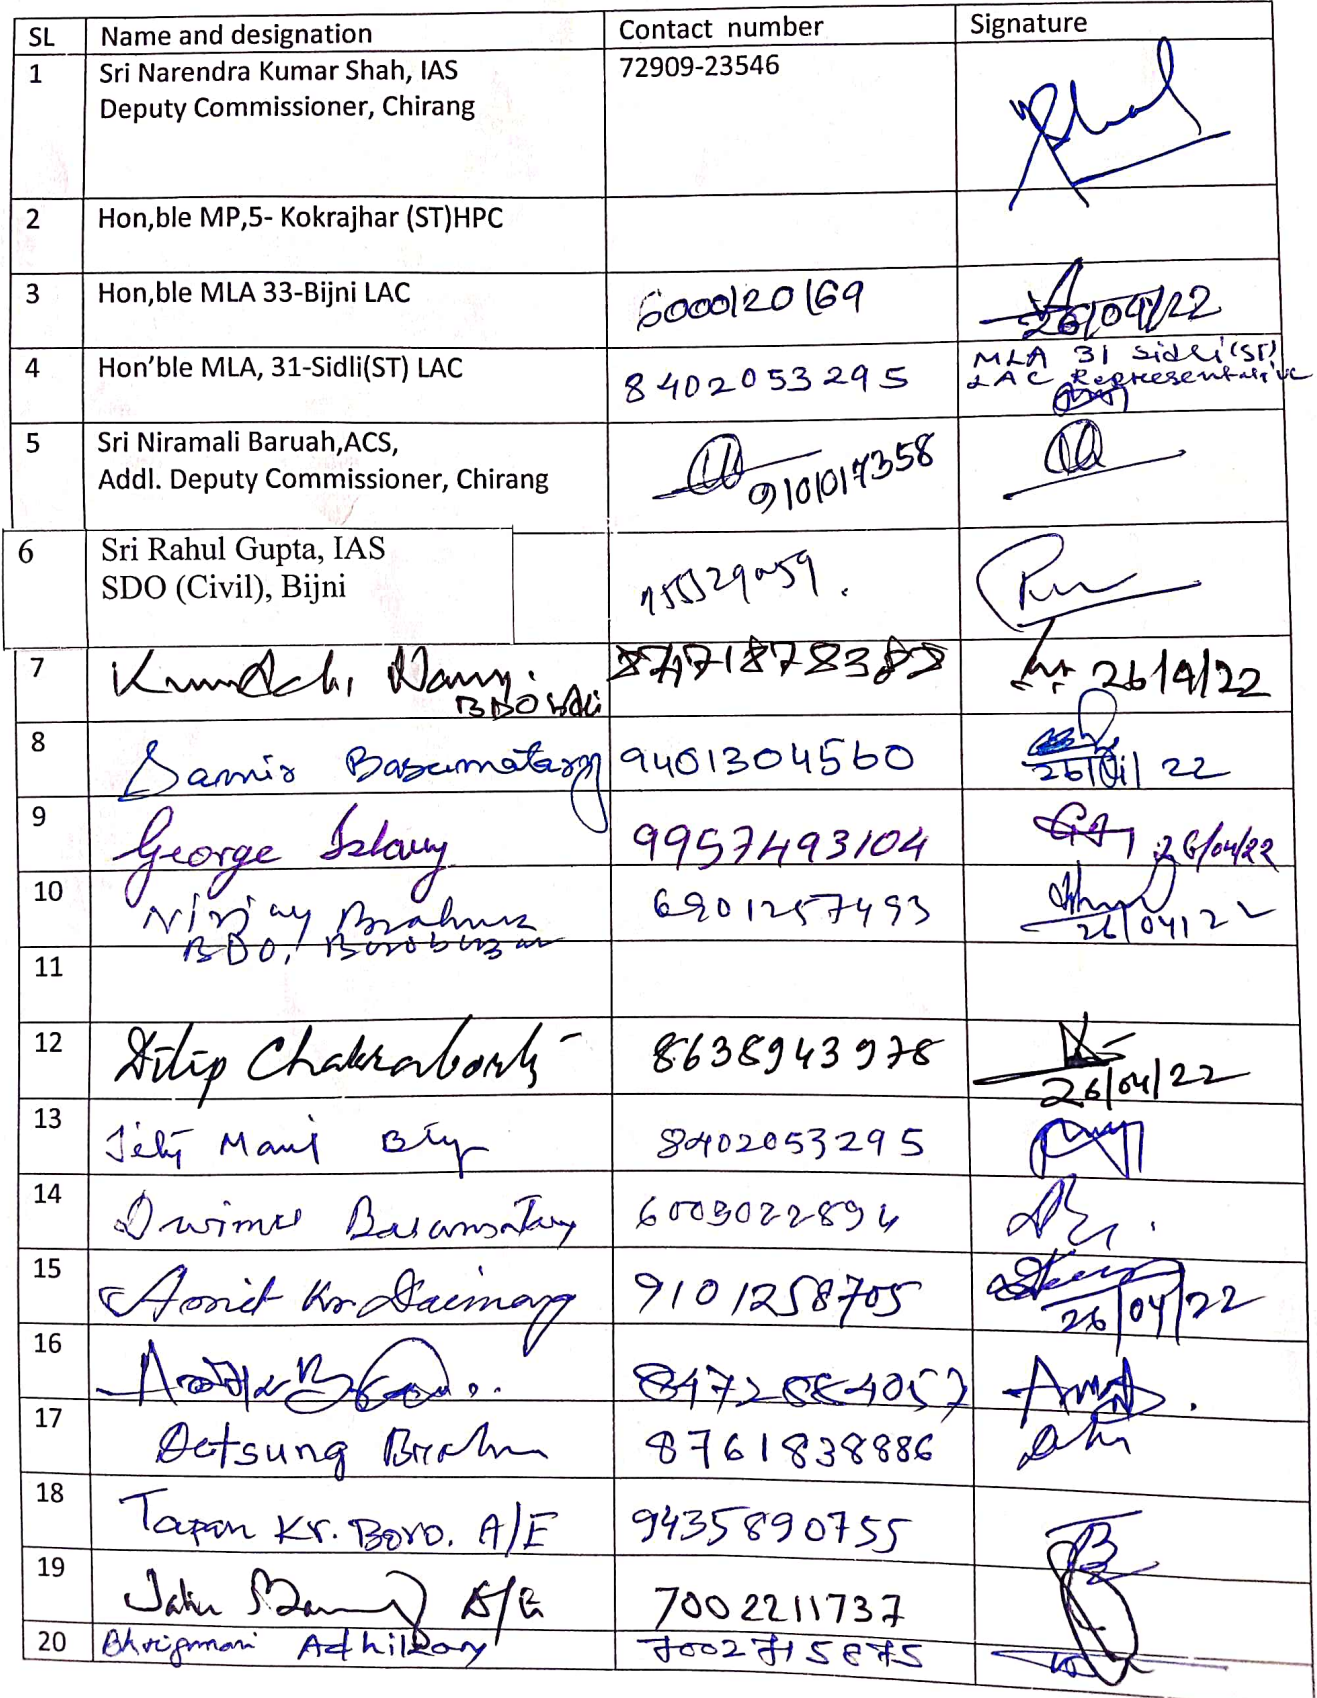 SL Name and designation Contact number Signature
1 Sri Narendra Kumar Shah, IAS 72909-23546
Deputy Commissioner, Chirang
2 Hon,ble MP,5- Kokrajhar (ST)HPC
3 Hon,ble MLA 33-Bijni LAC 6000120169 26/04/22
4 Hon'ble MLA, 31-Sidli(ST) LAC 8402053295 MLA 31 Sidli(ST)
LAC Representative
5 Sri Niramali Baruah,ACS,
Addl. Deputy Commissioner, Chirang 9101017358
6 Sri Rahul Gupta, IAS
SDO (Civil), Bijni
7 26/4/22
BDO
8 Samir Basumatary 9401304560
26/ 22
9 George Islary 9957493104 26/04/22
10 Nirjay Brahma 6901257493
BDO, Borobazar 26/04/22
11
12 Dilip Chakraborty 8638943978
26/04/22
13 Mani 8402053295
14 Basumatary 6003022894
15 Kr Daimary 9101258705
26/04/22
16
17 Detsung Brahma 8761838886
18 Tapan Kr. Boro. A/E 9435890755
19 7002211737
20 Adhikary 7002715875